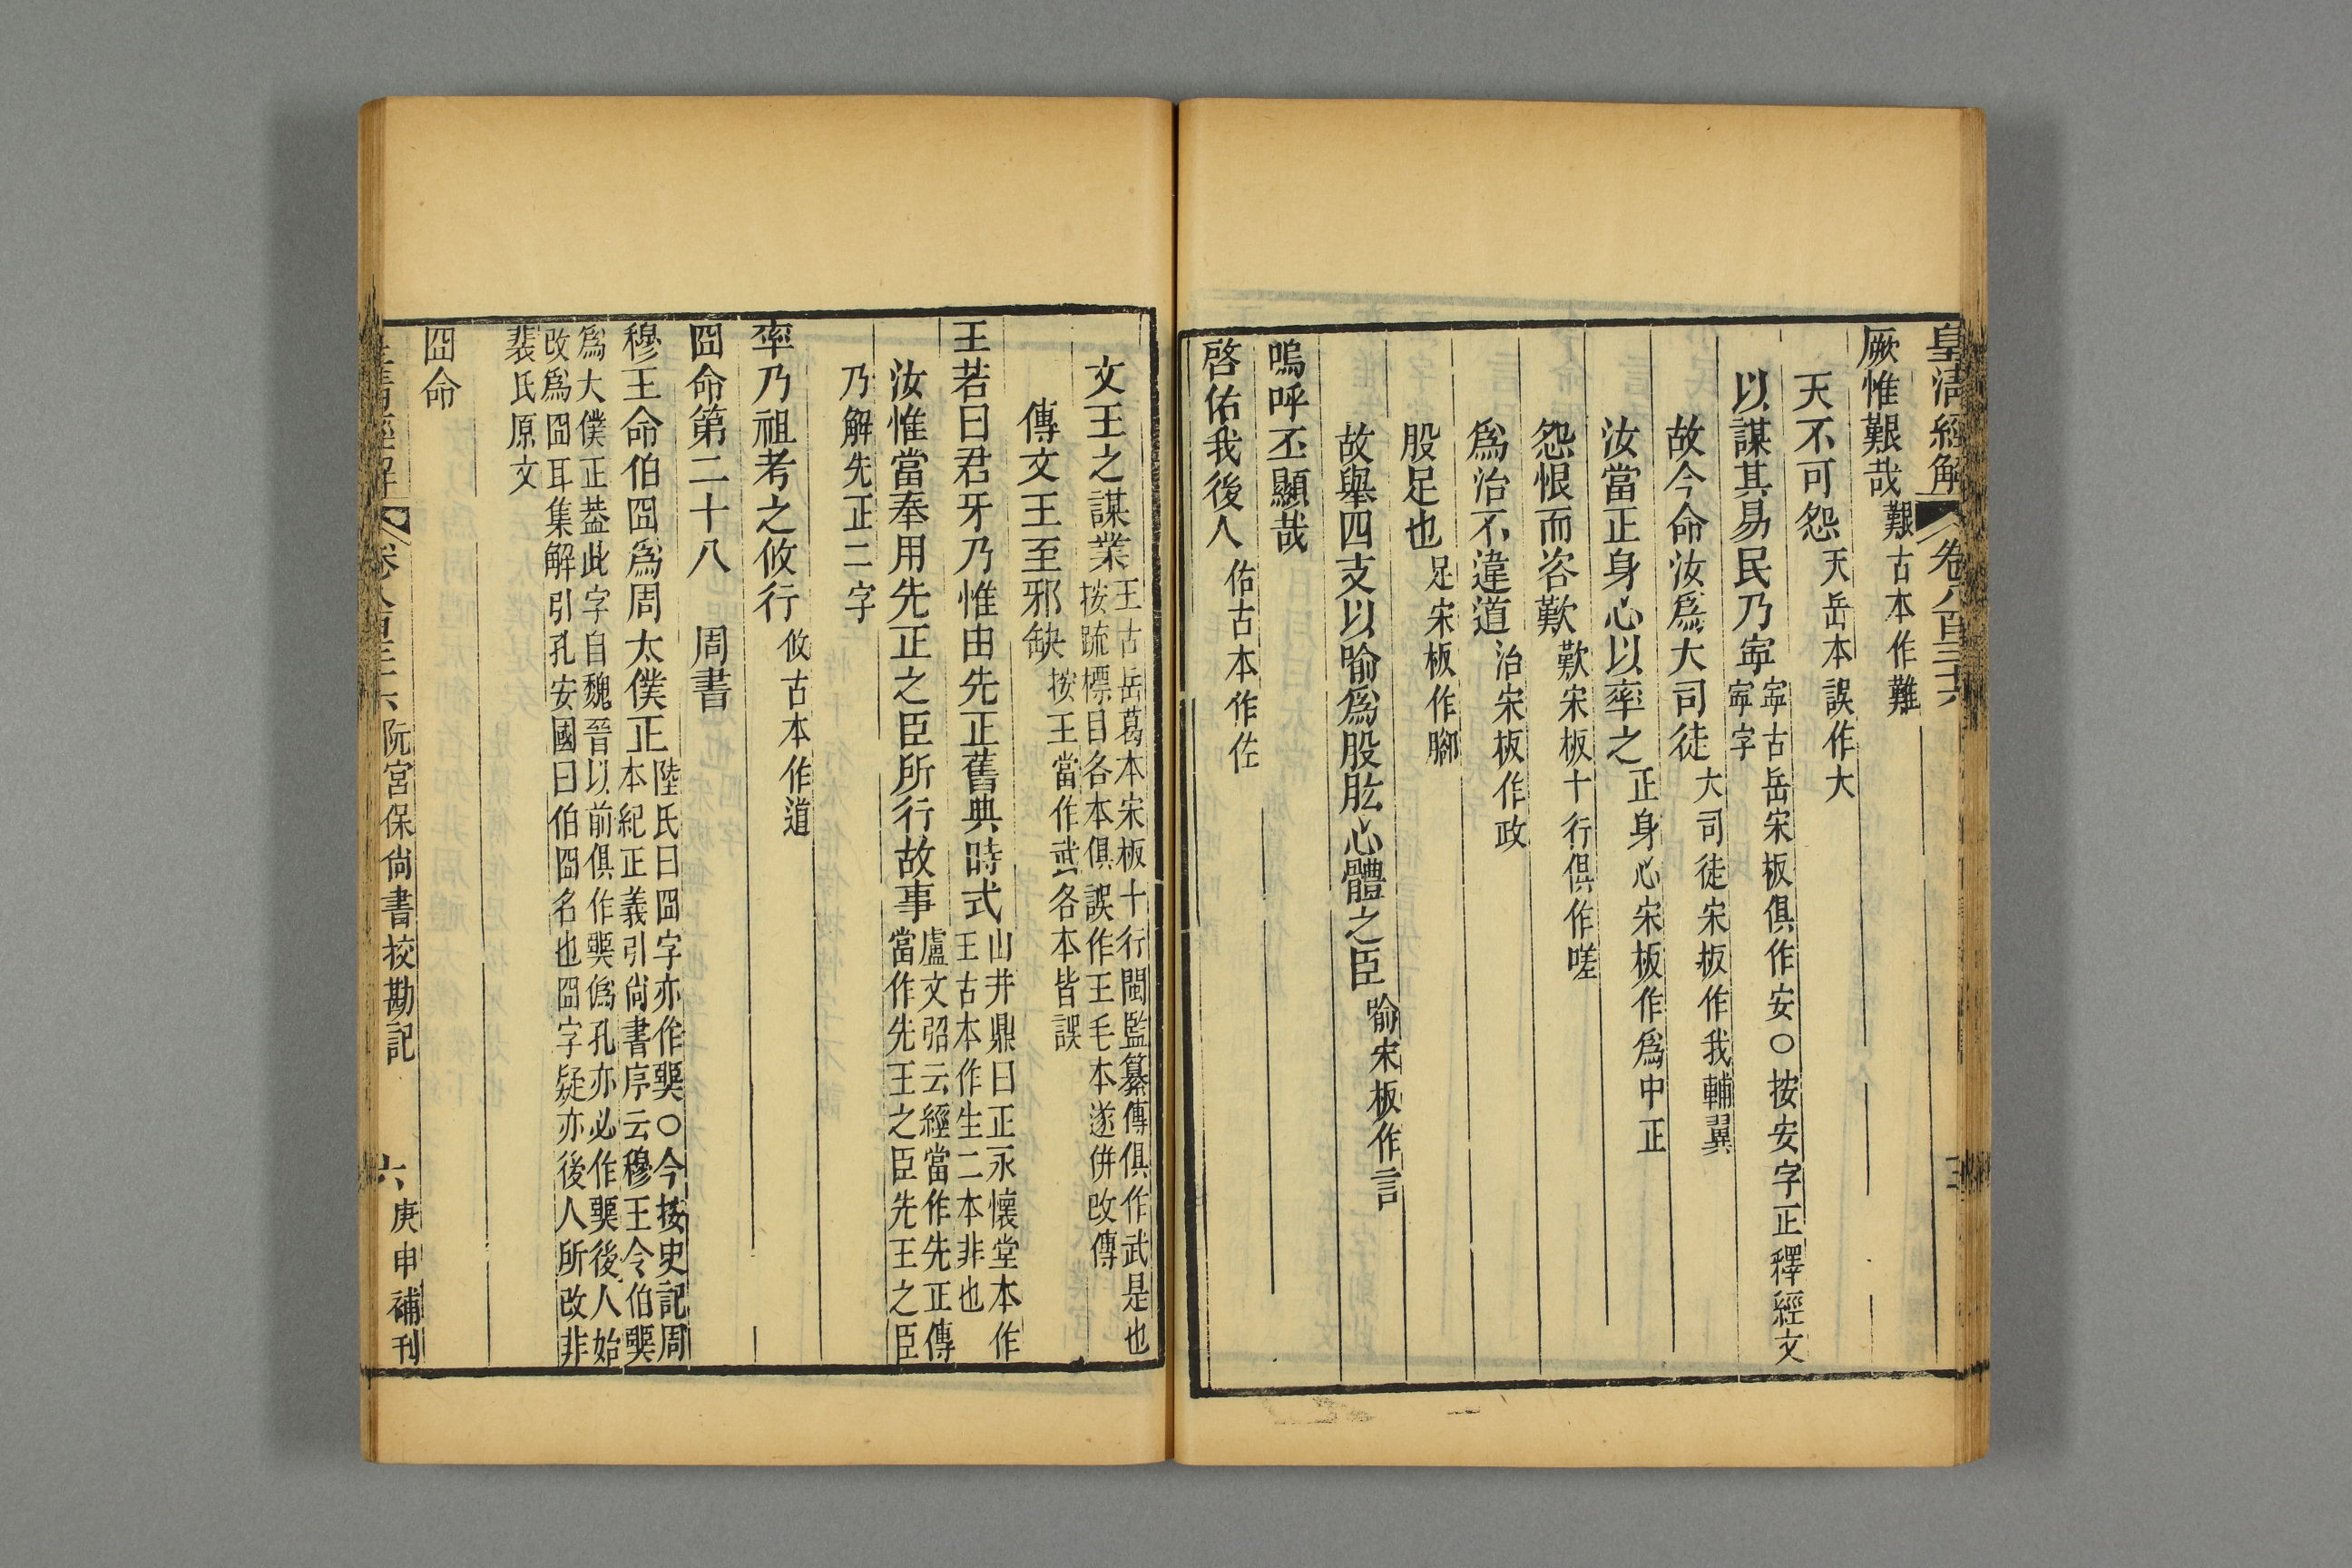 皇清經解 卷八百三十六
厥惟艱哉艱古本作難
天不可怨天岳本誤作大
以謀其易民乃寧寧古岳宋板俱作安○按安字正釋經文
寧字
故今命汝爲大司徒大司徒宋板作我輔翼
汝當正身心以率之正身心宋板作爲中正
怨恨而咨歎歎宋板十行俱作嗟
爲治不違道治宋板作政
股足也足宋板作腳
故舉四支以喻爲股肱心體之臣喻宋板作言
嗚呼丕顯哉
啓佑我後人佑古本作佐
文王之謀業王古岳葛本宋板十行閩監纂傳俱作武是也
按疏標目各本俱誤作王毛本遂併改傳
傳文王至邪缺按王當作武各本皆誤
王若曰君牙乃惟由先正舊典時式山井鼎曰正永懷堂本作
王古本作生二本非也
汝惟當奉用先正之臣所行故事盧文弨云經當作先正傳
當作先王之臣先王之臣
乃解先正二字
率乃祖考之攸行攸古本作道
囧命第二十八 周書
穆王命伯囧爲周太僕正陸氏曰囧字亦作臩○今按史記周
本紀正義引尙書序云穆王令伯臩
爲大僕正葢此字自魏晉以前俱作臩僞孔亦必作臩後人始
改爲囧耳集解引孔安國曰伯囧名也囧字疑亦後人所改非
裴氏原文
囧命
皇清經解 卷八百三十六 阮宮保尙書挍勘記 六 庚申補刊